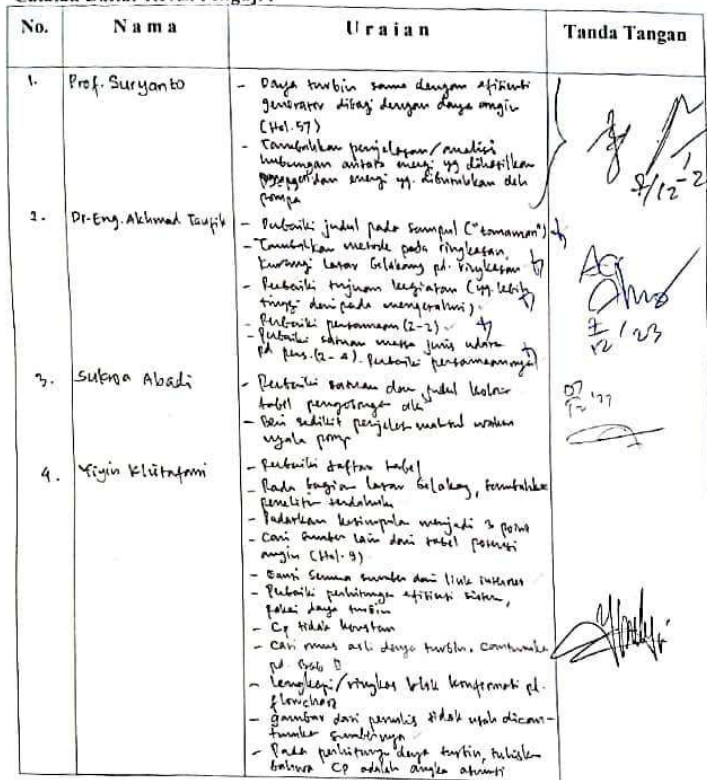 No. Nama Uraian Tanda Tangan
1. Prof. Suryanto
- Daya turbin sama dengan efisiensi
generator dibagi dengan daya angin
(Hal.57)
- Tambahkan penjelasan/analisi
hubungan antara energi yg dihasilkan
dan energi yg. dibutuhkan oleh
pompa
2. Dr-Eng. Akhmad Taufik
- Perbaiki judul pada sampul ("tomaman")
- Tambahkan metode pada ringkasan,
kurangi latar belakang pd. ringkasan
- Perbaiki tujuan kegiatan (yg. lebih
tinggi daripada mengetahui).
- Perbaiki persamaan (2-2)
- Perbaiki satuan massa jenis udara
pd pers. (2-4). Perbaiki persamaannya
3. Sukma Abadi
- Perbaiki satuan dan judul kolom
tabel pengosongan aki
- Beri sedikit penjelas maksud waktu
nyala pompa
4. Yiyin Klistafani
- Perbaiki daftar tabel
- Pada bagian latar belakang, tambahkan
penelitian terdahulu
- Padatkan kesimpulan menjadi 3 point
- Cari sumber lain dari tabel potensi
angin (Hal.9)
- Ganti semua sumber dari link internet
- Perbaiki perhitungan efisiensi sistem,
pakai daya turbin
- Cp tidak konstan
- Cari rumus asli daya turbin, cantumkan
pd. Bab II
- Lengkapi/ringkas blok konfermasi pd.
flowchart
- gambar dari penulis tidak usah dican-
tumkan sumbernya
- Pada perhitungan daya turbin, tuliskan
bahwa Cp adalah angka asumsi